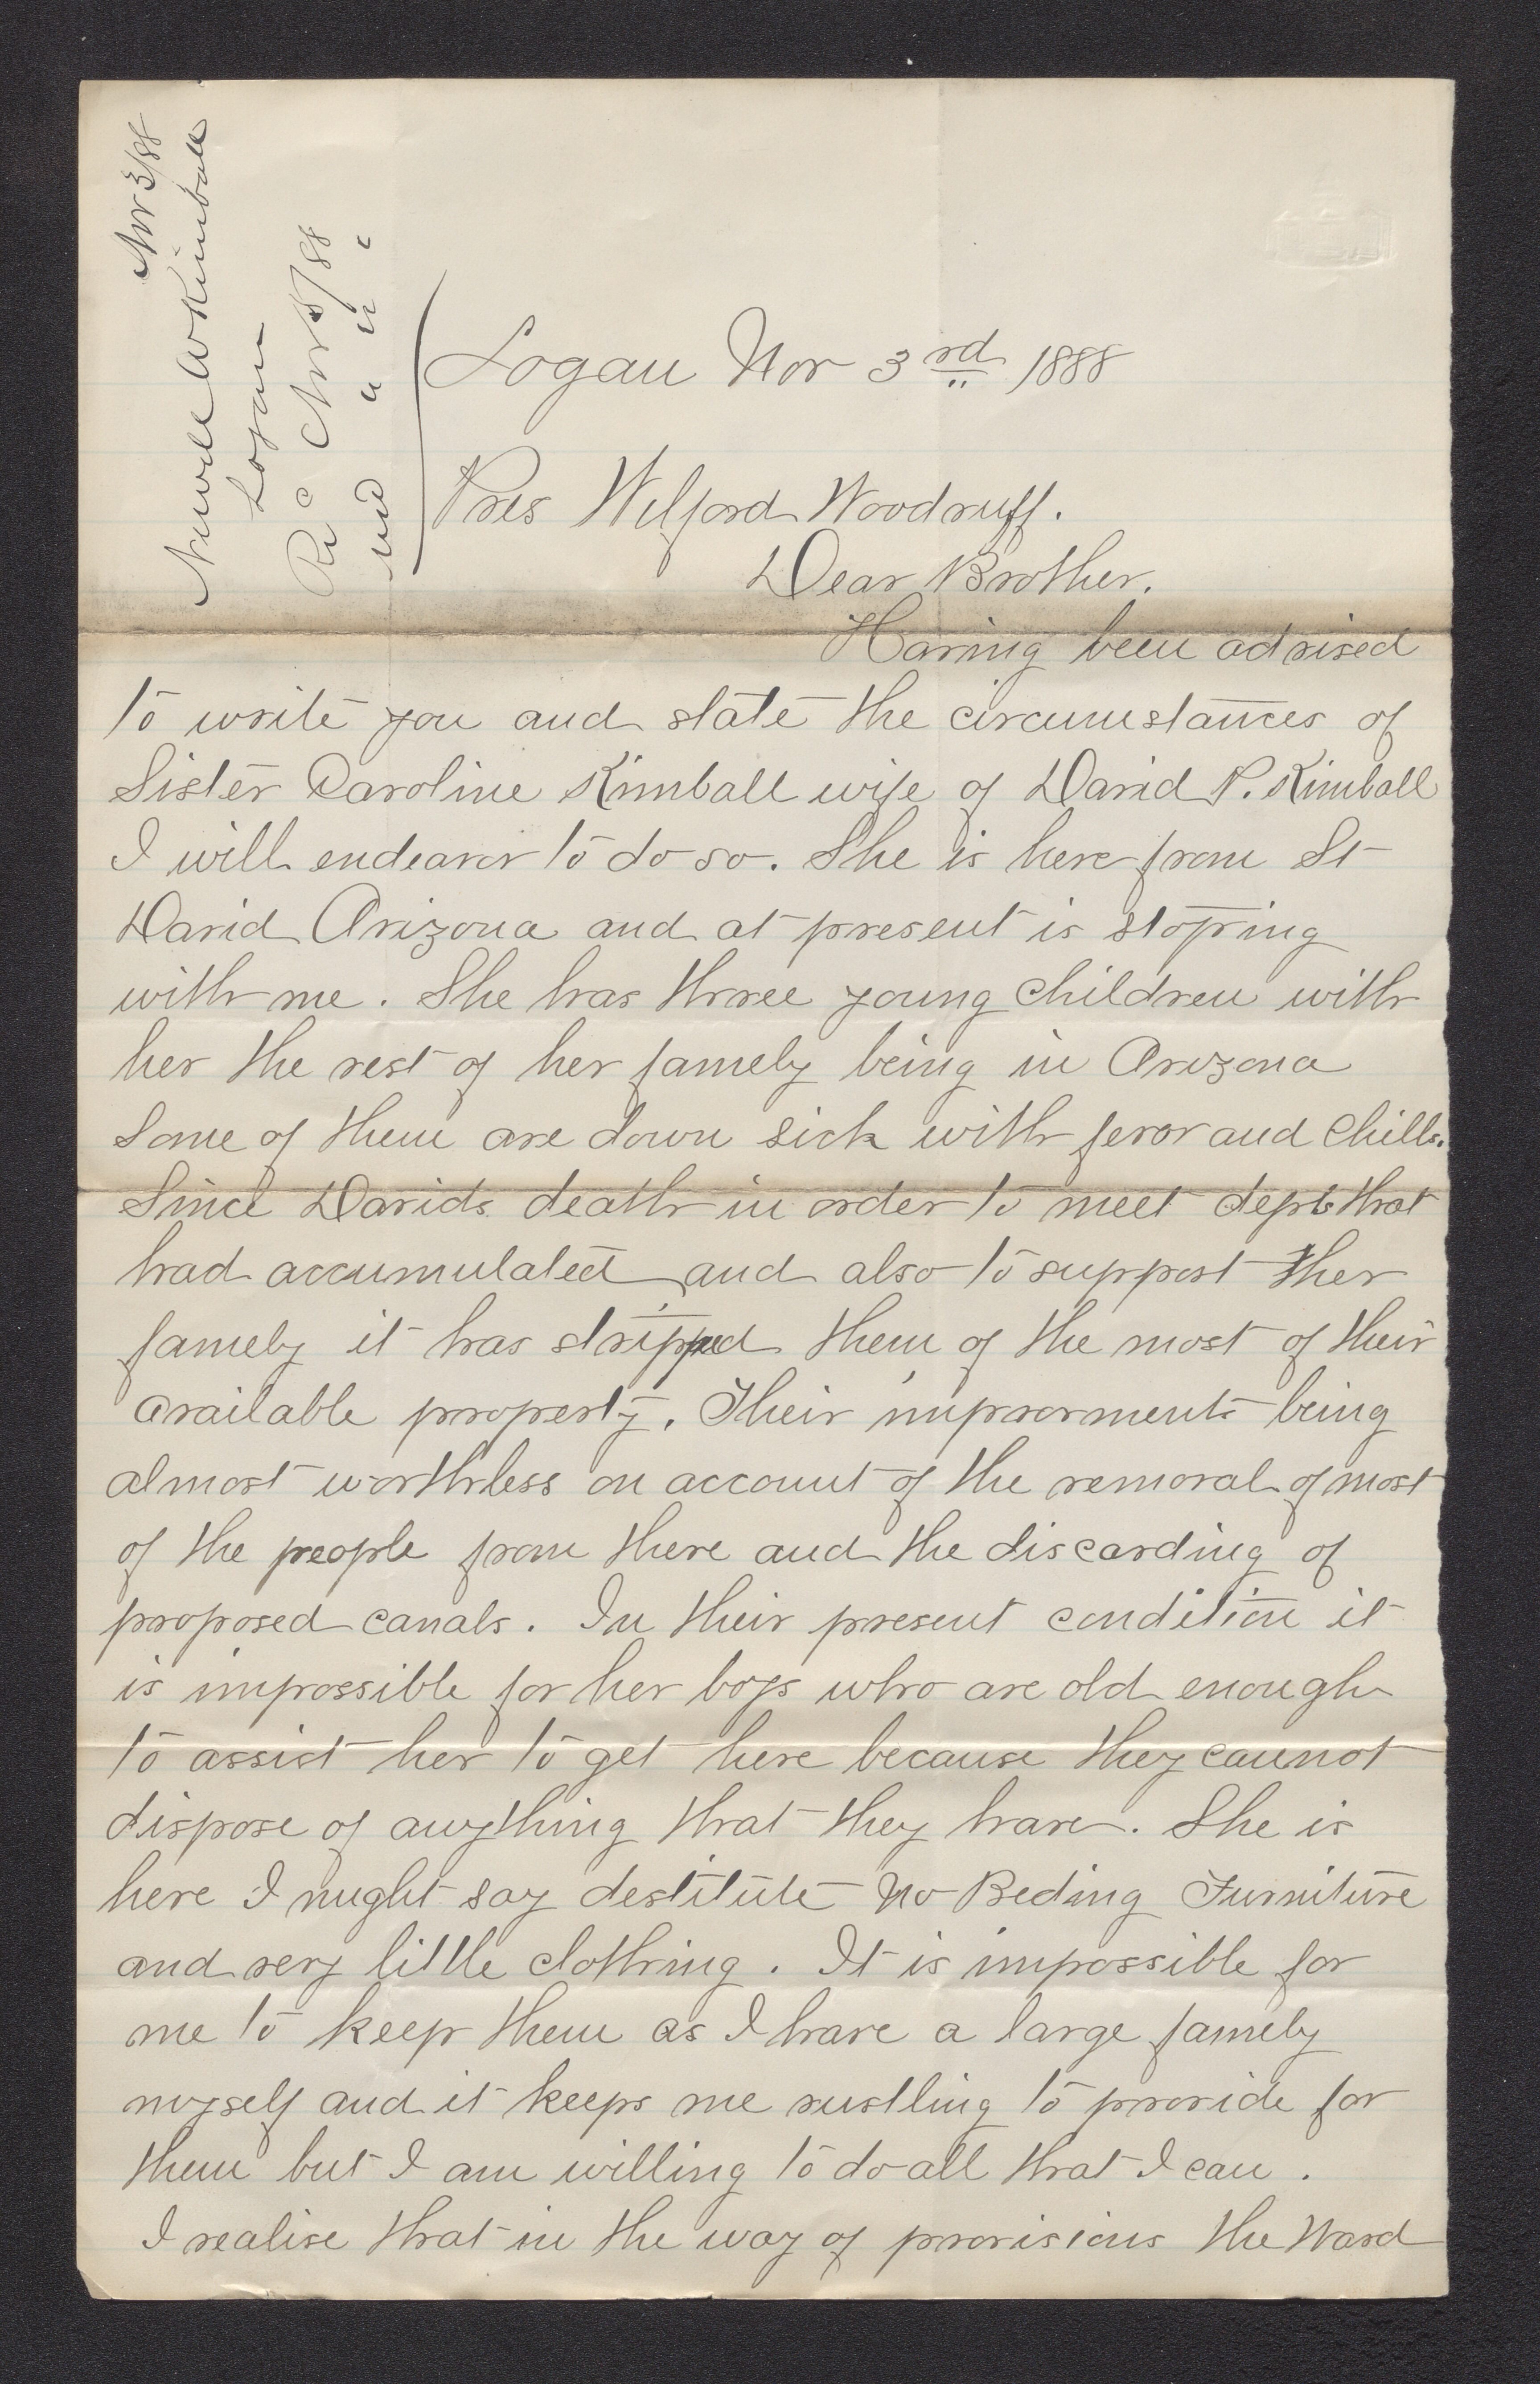 Newell W Kimball Nov 3/88
Logan
Rec Nov 5/88
Logan Nov 3rd 1888
Pres Wilford Woodruff.
Dear Brother.
Having been advised
to write you and state the circumstances of
Sister Caroline Kimball wife of David P. Kimball
I will endeavor to do so. She is here from St
David Arizona and at present is stoping
with me. She has three young children with
her the rest of her famely being in Arizona
Some of them are down sick with fevor and chills.
Since Davids death in order to meet depts that
had accumulated and also to support ther
famely it has stripped them of the most of their
available property. Their improvments being
almost worthless on account of the removal of most
of the people from there and the discarding of
proposed canals. In their present condition it
is impossible for her boys who are old enough
to assist her to get here because they cannot
dispose of anything that they have. She is
here I might say destitute No Beding Furniture
and very little clothing. It is impossible for
me to keep them as I have a large famely
myself and it keeps me rustling to provide for
them but I am willing to do all that I can.
I realise that in the way of provisions the Ward